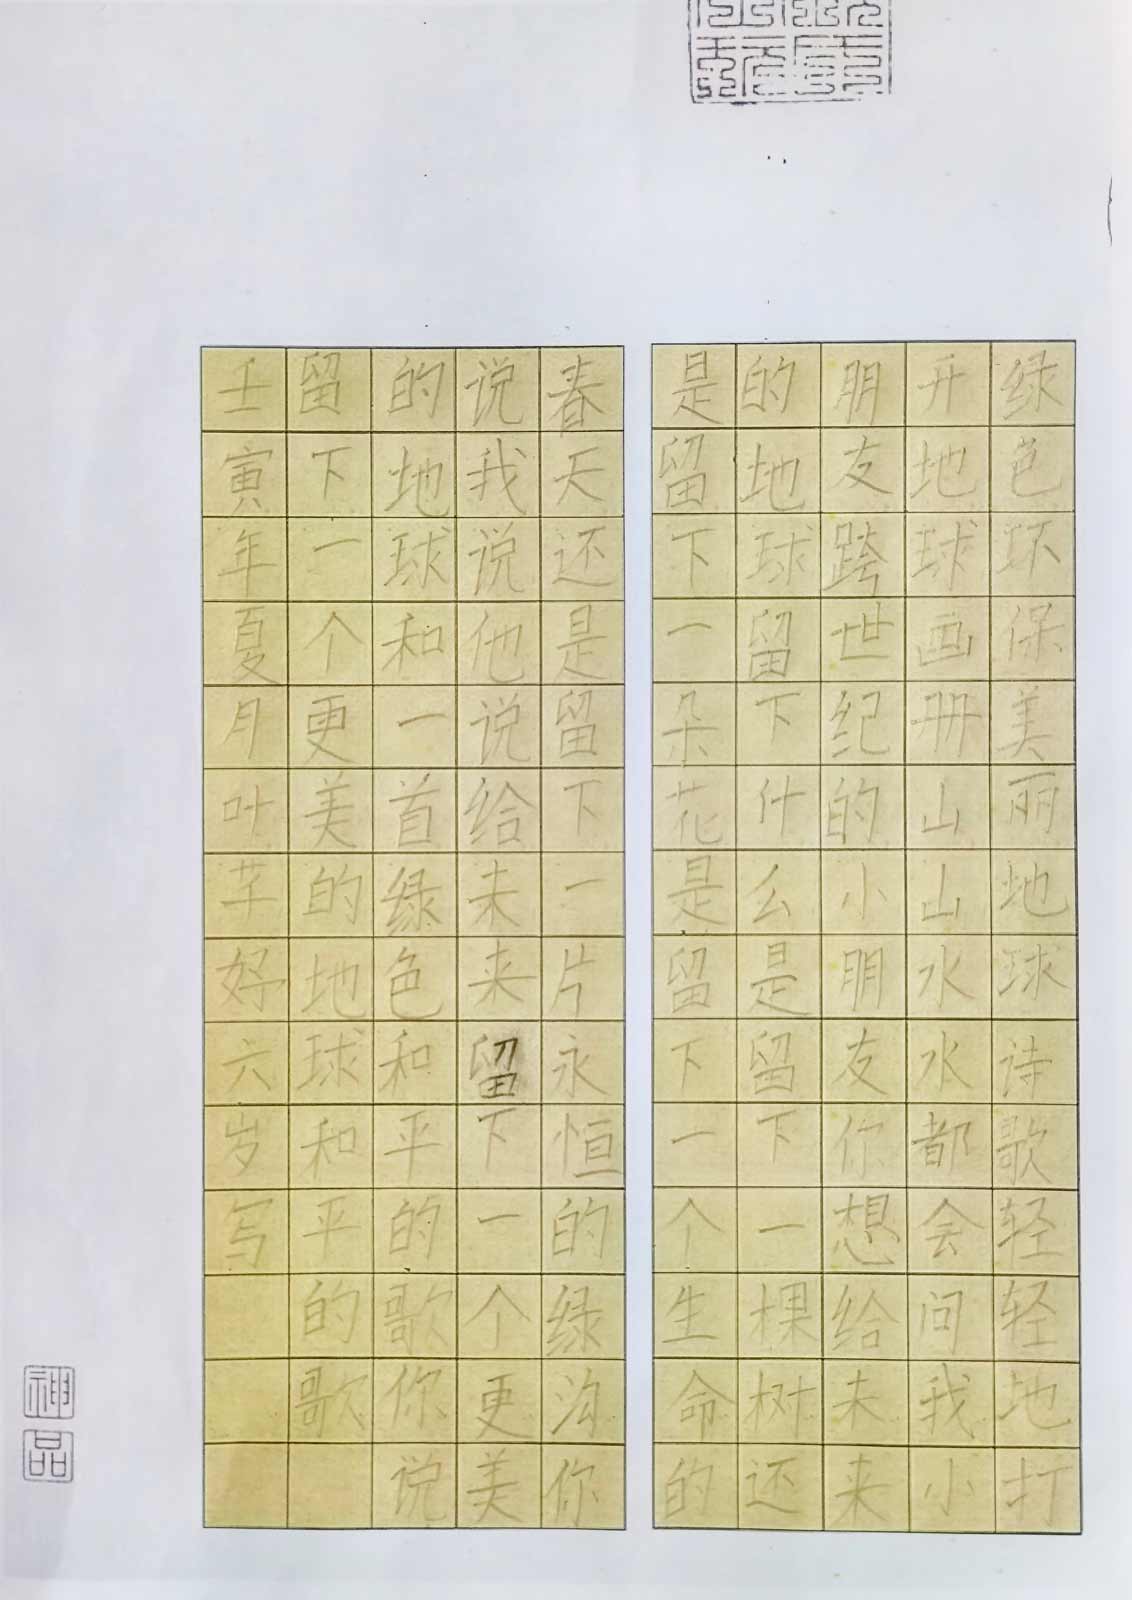 绿色环保美丽地球诗歌轻轻地打
开地球画册山山水水都会问我小
朋友跨世纪的小朋友你想给未来
的地球留下什么是留下一棵树还
是留下一朵花是留下一个生命的
春天还是留下一片永恒的绿沟你
说我说他说给未来留下一个更美
的地球和一首绿色和平的歌你说
留下一个更美的地球和平的歌
壬寅年夏月叶芊妤六岁写
神品